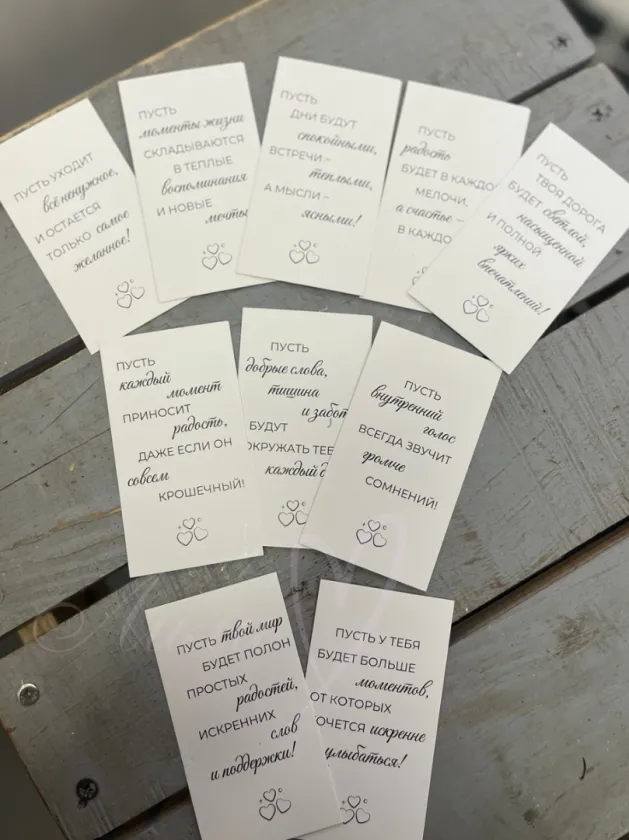 ПУСТЬ УХОДИТ
всё ненужное,
И ОСТАЁТСЯ
ТОЛЬКО самое
желанное!
ПУСТЬ
моменты жизни
СКЛАДЫВАЮТСЯ
В ТЕПЛЫЕ
воспоминания
И НОВЫЕ
мечты
ПУСТЬ
ДНИ БУДУТ
спокойными,
ВСТРЕЧИ –
теплыми,
А МЫСЛИ –
ясными!
ПУСТЬ
радость
БУДЕТ В КАЖДО
МЕЛОЧИ,
а счастье –
В КАЖДО
ПУСТЬ
ТВОЯ ДОРОГА
БУДЕТ светлой,
насыщенной
И ПОЛНОЙ
ярких
впечатлений!
ПУСТЬ
каждый
момент
ПРИНОСИТ
радость,
ДАЖЕ ЕСЛИ ОН
совсем
КРОШЕЧНЫЙ!
ПУСТЬ
добрые слова,
тишина
и забот
БУДУТ
ОКРУЖАТЬ ТЕБ
каждый д
ПУСТЬ
внутренний
голос
ВСЕГДА ЗВУЧИТ
громче
СОМНЕНИЙ!
ПУСТЬ твой мир
БУДЕТ ПОЛОН
ПРОСТЫХ
радостей,
ИСКРЕННИХ
слов
и поддержки!
ПУСТЬ У ТЕБЯ
БУДЕТ БОЛЬШЕ
моментов,
ОТ КОТОРЫХ
ХОЧЕТСЯ искренне
улыбаться!